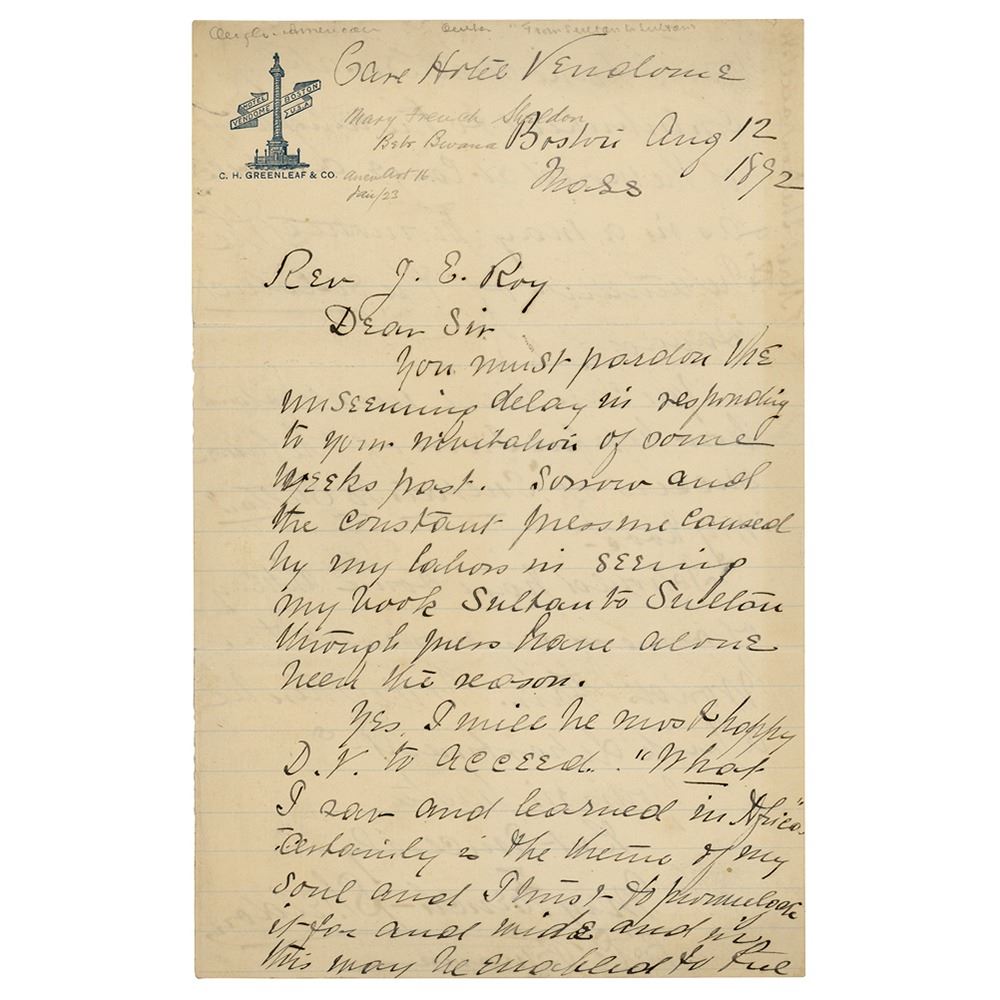 Anglo-American "From Sultan to Sultan"
Care Hotel Vendome
HOTEL VENDOME BOSTON U.S.A.
Mary French Sheldon
Bebe Bwana
Boston Aug 12
Mass 1892
C. H. GREENLEAF & CO.
Jan/23
Rev J. E. Roy
Dear Sir
You must pardon the
unseeming delay in responding
to your invitation of some
weeks past. Sorrow and
the constant pressure caused
by my labors in seeing
my book Sultan to Sultan
through press have alone
been the reason.
Yes, I will be most happy
D.V. to acceed. "What
I saw and learned in Africa"
certainly is the theme of my
soul and I trust to promulgate
it far and wide and in
this way be enabled to